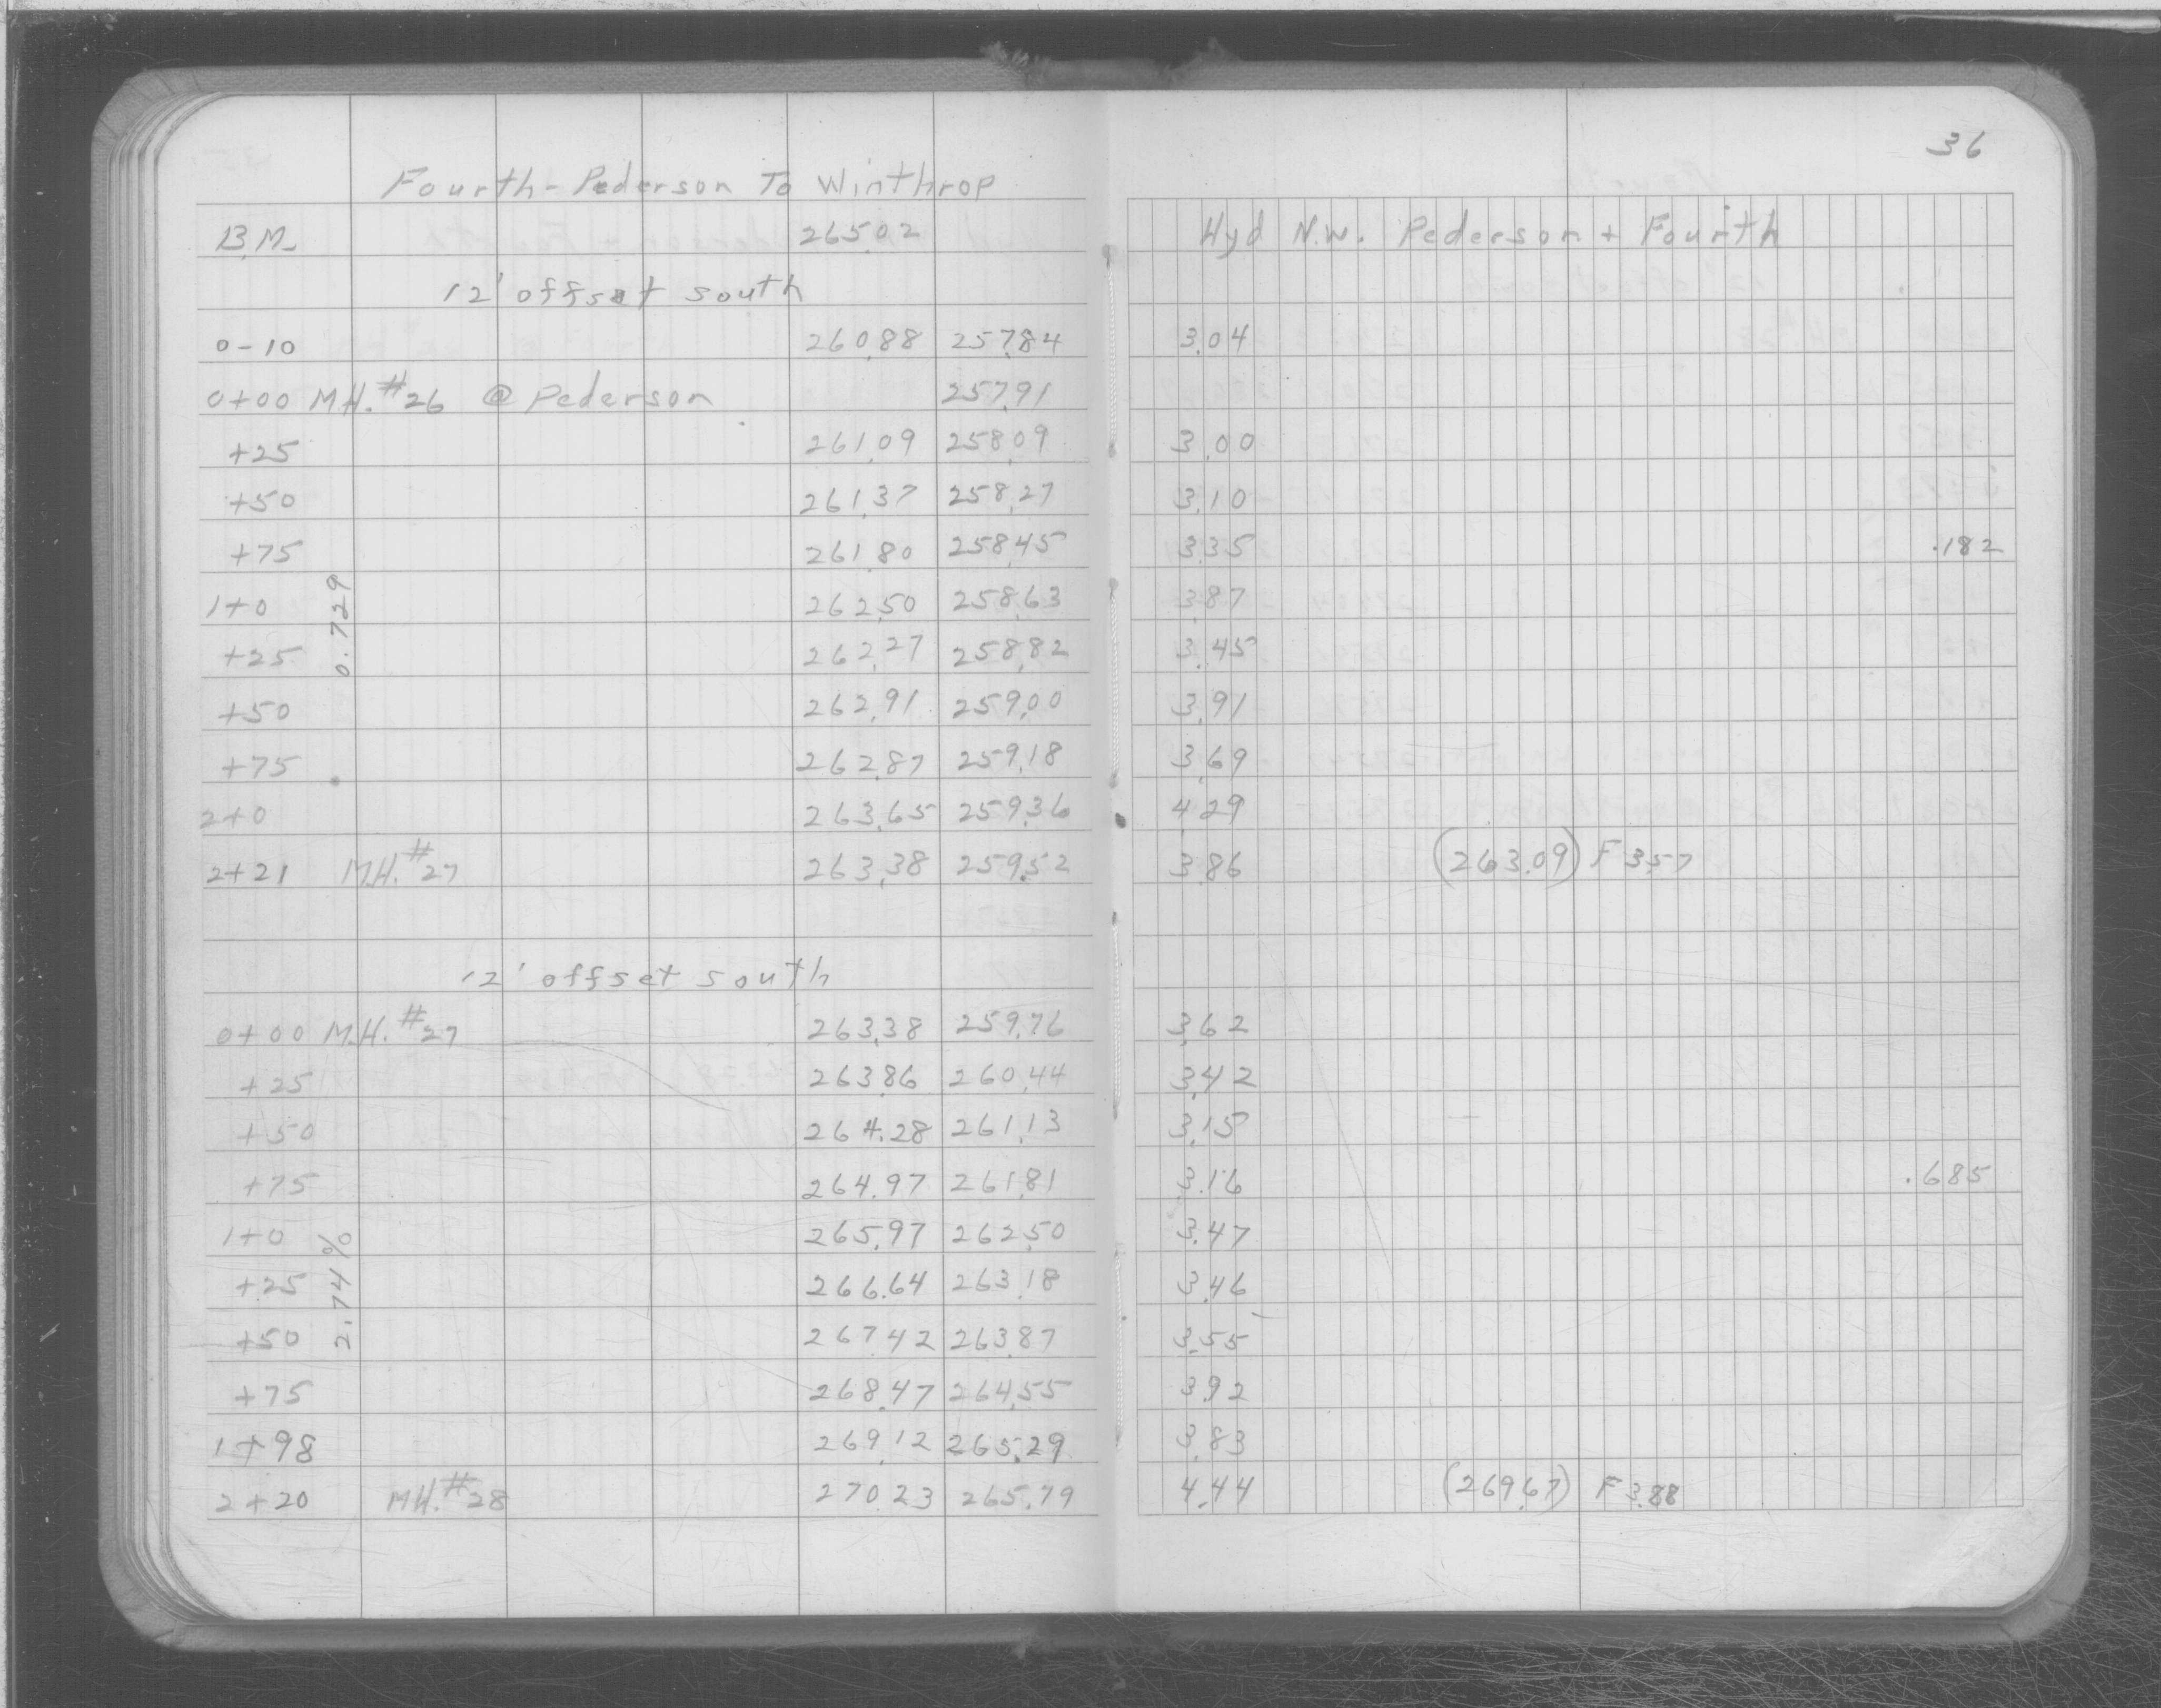 36
Fourth - Pederson To Winthrop
B.M. 265.02 Hyd N.W. Pederson + Fourth
12' offset south
0-10 260.88 257.84 3.04
0+00 M.H. #26 @ Pederson 257.91
+25 261.09 258.09 3.00
+50 261.37 258.27 3.10
+75 261.80 258.45 3.35 .182
1+0 262.50 258.63 3.87
0.729
+25 262.27 258.82 3.45
+50 262.91 259.00 3.91
+75 262.87 259.18 3.69
2+0 263.65 259.36 4.29
2+21 M.H. #27 263.38 259.52 3.86 (263.09) F 3.57
12' offset south
0+00 M.H. #27 263.38 259.76 3.62
+25 263.86 260.44 3.42
+50 264.28 261.13 3.15
+75 264.97 261.81 3.16 .685
1+0 265.97 262.50 3.47
2.74%
+25 266.64 263.18 3.46
+50 267.42 263.87 3.55
+75 268.47 264.55 3.92
1+98 269.12 265.29 3.83
2+20 MH. #28 270.23 265.79 4.44 (269.67) F 3.88